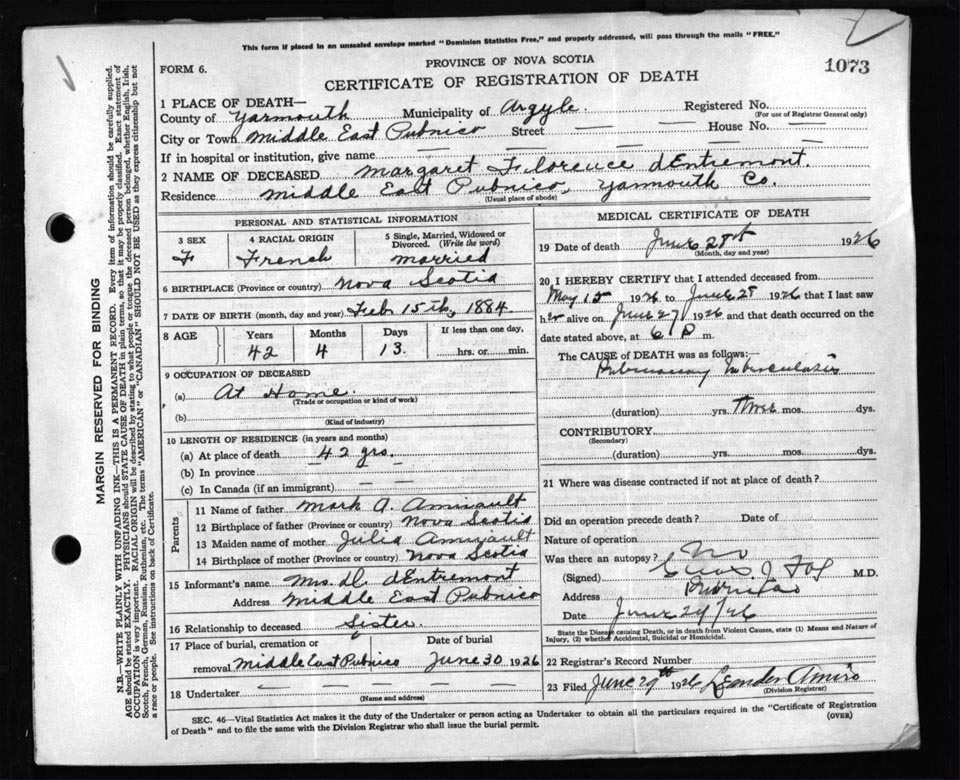 This form if placed in an unsealed envelope marked "Dominion Statistics Free," and properly addressed, will pass through the mails "FREE."
PROVINCE OF NOVA SCOTIA
FORM 6.
CERTIFICATE OF REGISTRATION OF DEATH
1073
1 PLACE OF DEATH—
County of Yarmouth Municipality of Argyle. Registered No.
(For use of Registrar General only)
City or Town Middle East Pubnico Street — — House No. —
If in hospital or institution, give name — — — — —
2 NAME OF DECEASED Margaret Florence dEntremont.
Residence Middle East Pubnico, Yarmouth Co.
(Usual place of abode)
PERSONAL AND STATISTICAL INFORMATION
3 SEX 4 RACIAL ORIGIN 5 Single, Married, Widowed or Divorced. (Write the word)
F French married
6 BIRTHPLACE (Province or country) Nova Scotia
7 DATE OF BIRTH (month, day and year) Feb 15th, 1884.
8 AGE Years Months Days If less than one day,
42 4 13. hrs. or min.
9 OCCUPATION OF DECEASED
(a) At Home.
(Trade or occupation or kind of work)
(b)
(Kind of industry)
10 LENGTH OF RESIDENCE (in years and months)
(a) At place of death 42 yrs.
(b) In province
(c) In Canada (if an immigrant) — —
Parents
11 Name of father Mark A. Amirault
12 Birthplace of father (Province or country) Nova Scotia
13 Maiden name of mother Julia Amirault
14 Birthplace of mother (Province or country) Nova Scotia
15 Informant's name Mrs. dEntremont
Address Middle East Pubnico
16 Relationship to deceased Sister.
17 Place of burial, cremation or Date of burial
removal Middle East Pubnico June 30 1926
18 Undertaker — — — — —
(Name and address)
MEDICAL CERTIFICATE OF DEATH
19 Date of death June 28th 1926
(Month, day and year)
20 I HEREBY CERTIFY that I attended deceased from
May 15 1926 to June 28 1926 that I last saw
her alive on June 27 1926 and that death occurred on the
date stated above, at 6 P m.
The CAUSE of DEATH was as follows:
Pulmonary tuberculosis
(duration) yrs. three mos. dys.
CONTRIBUTORY
(Secondary)
(duration) yrs. mos. dys.
21 Where was disease contracted if not at place of death?
Did an operation precede death? Date of
Nature of operation
Was there an autopsy? No
(Signed) M.D.
Address Pubnico
Date June 29/26
State the Disease causing Death, or in death from Violent Causes, state (1) Means and Nature of
Injury, (2) whether Accidental, Suicidal or Homicidal.
22 Registrar's Record Number
23 Filed June 29th 1926 Leander Amiro
(Division Registrar)
SEC. 46—Vital Statistics Act makes it the duty of the Undertaker or person acting as Undertaker to obtain all the particulars required in the "Certificate of Registration
of Death" and to file the same with the Division Registrar who shall issue the burial permit.
(OVER)
MARGIN RESERVED FOR BINDING
N.B.—WRITE PLAINLY WITH UNFADING INK—THIS IS A PERMANENT RECORD. Every item of information should be carefully supplied.
AGE should be stated EXACTLY. PHYSICIANS should STATE CAUSE OF DEATH in plain terms, so that it may be properly classified. Exact statement of
OCCUPATION is very important. RACIAL ORIGIN will be described by stating to what people or tongue the deceased person belonged, whether English, Irish,
Scotch, French, German, Russian, Ruthenian, etc. The terms "AMERICAN" or "CANADIAN" SHOULD NOT BE USED as they express citizenship but not
a race or people. See instructions on back of Certificate.